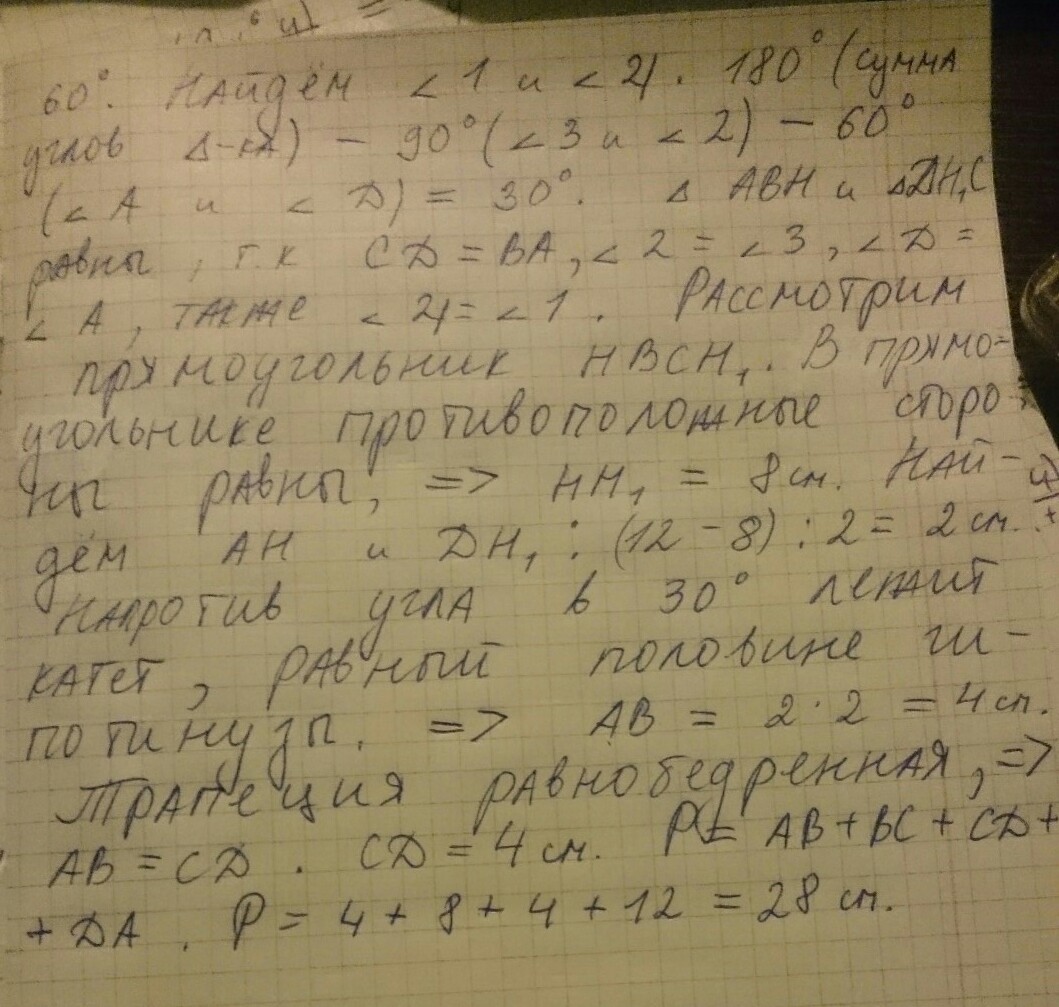 60°. Найдём <1 и <4. 180° (сумма
углов Δ-ка) - 90° (<3 и <2) - 60°
(<A и <D) = 30°. Δ ABH и ΔDH₁C
равны, т.к CD = BA, <2 = <3, <D =
<A, также <4 = <1. Рассмотрим
прямоугольник HBCH₁. В прямо-
угольнике противоположные сторо-
ны равны, => HH₁ = 8 см. Най-
дём AH и DH₁: (12 - 8) : 2 = 2 см.
Напротив угла в 30° лежит
катет, равный половине ги-
потинузы. => AB = 2·2 = 4 см.
Трапеция равнобедренная, =>
AB = CD. CD = 4 см. P = AB + BC + CD +
+ DA. P = 4 + 8 + 4 + 12 = 28 см.